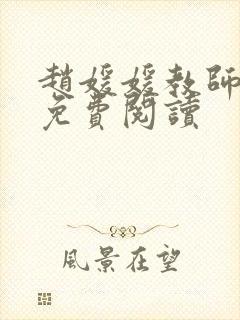 趙媛媛教師
免費閱讀
風景在望